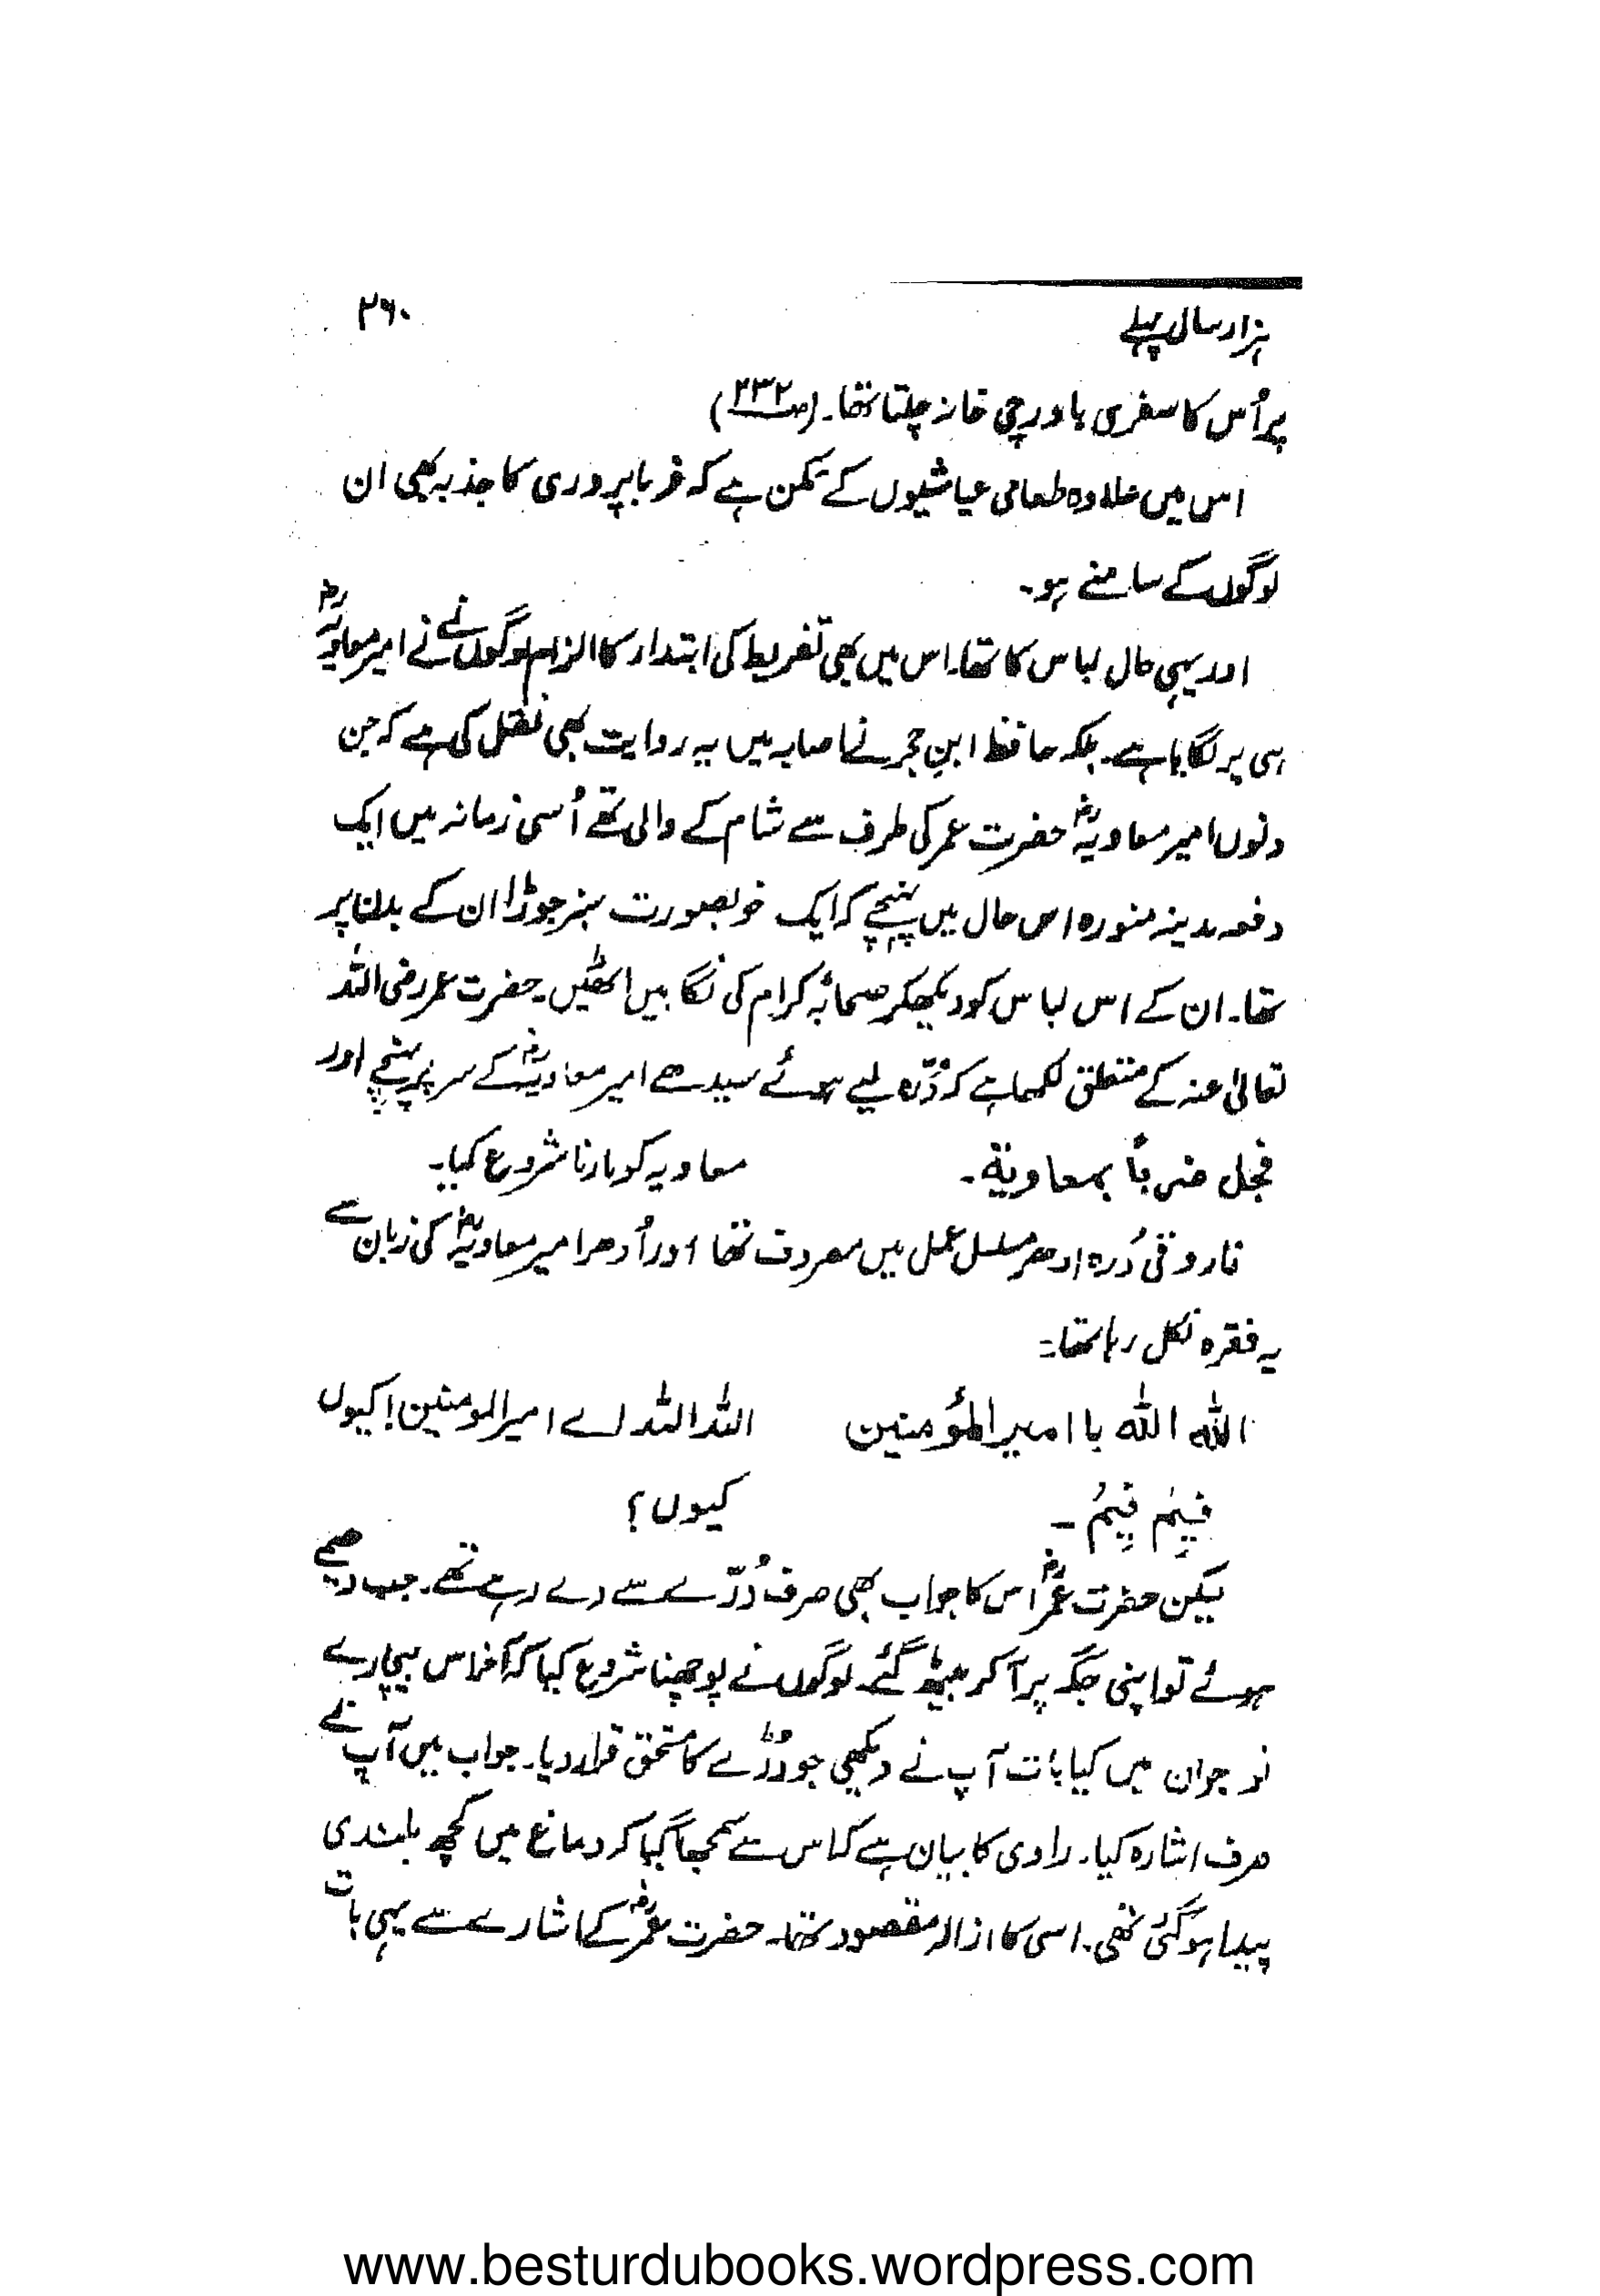 ہزار سال پہلے
۲۶۰
پر اُس کا سفری باورچی خانہ چلتا تھا۔ (ص۲۳۲)
اس میں علاوہ طعامی عیاشیوں کے ممکن ہے کہ غربا پروری کا جذبہ بھی ان
لوگوں کے سامنے ہو۔
اور یہی حال لباس کا تھا۔ اس میں بھی تفریط کی ابتدار کا الزام لوگوں نے نے امیر معاویہؓ
ہی پر لگایا ہے۔ بلکہ حافظ ابنِ حجر نے اصابہ میں یہ روایت بھی نقل کی ہے کہ جن
دنوں امیر معاویہؓ حضرت عمر کی طرف سے شام کے والی تھے اُسی زمانہ میں ایک
دفعہ مدینہ منورہ اس حال میں پہنچے کہ ایک خوبصورت سبز جوڑا ان کے بدن پر
تھا۔ ان کے اس لباس کو دیکھکر صحابۂ کرام کی نگاہیں اٹھیں۔ حضرت عمر رضی اللہ
تعالیٰ عنہ کے متعلق لکھا ہے کہ دُرّہ لیے ہوئے سیدھے امیر معاویہؓ کے سر پر پہنچے اور
فجعل ضرباً بمعاویة۔ معاویہ کو مارنا شروع کیا۔
فاروقی دُرہ ادھر مسلسل عمل میں مصروف تھا اور اُدھر امیر معاویہؓ کی زبان سے
یہ فقرہ نکل رہا تھا:۔
اللہ اللہ یا امیر المؤمنین اللہ اللہ اے امیر المومنین! کیوں
فِیمَ فِیمَ ۔ کیوں؟
لیکن حضرت عمرؓ اس کا جواب بھی صرف دُرّے سے دے رہے تھے۔ جب دھیمے
ہوئے تو اپنی جگہ پر آکر بیٹھ گئے۔ لوگوں نے پوچھنا شروع کیا کہ آخر اس بیچارے
نوجوان میں کیا بات آپ نے دیکھی جو دُرّے کا مستحق قرار دیا۔ جواب میں آپ نے
صرف اشارہ کیا۔ راوی کا بیان ہے کہ اس سے سمجھا گیا کہ دماغ میں کچھ بلندی
پیدا ہو گئی تھی۔ اسی کا ازالہ مقصود تھا۔ حضرت عمرؓ کے اشارے سے یہی بات
www.besturdubooks.wordpress.com